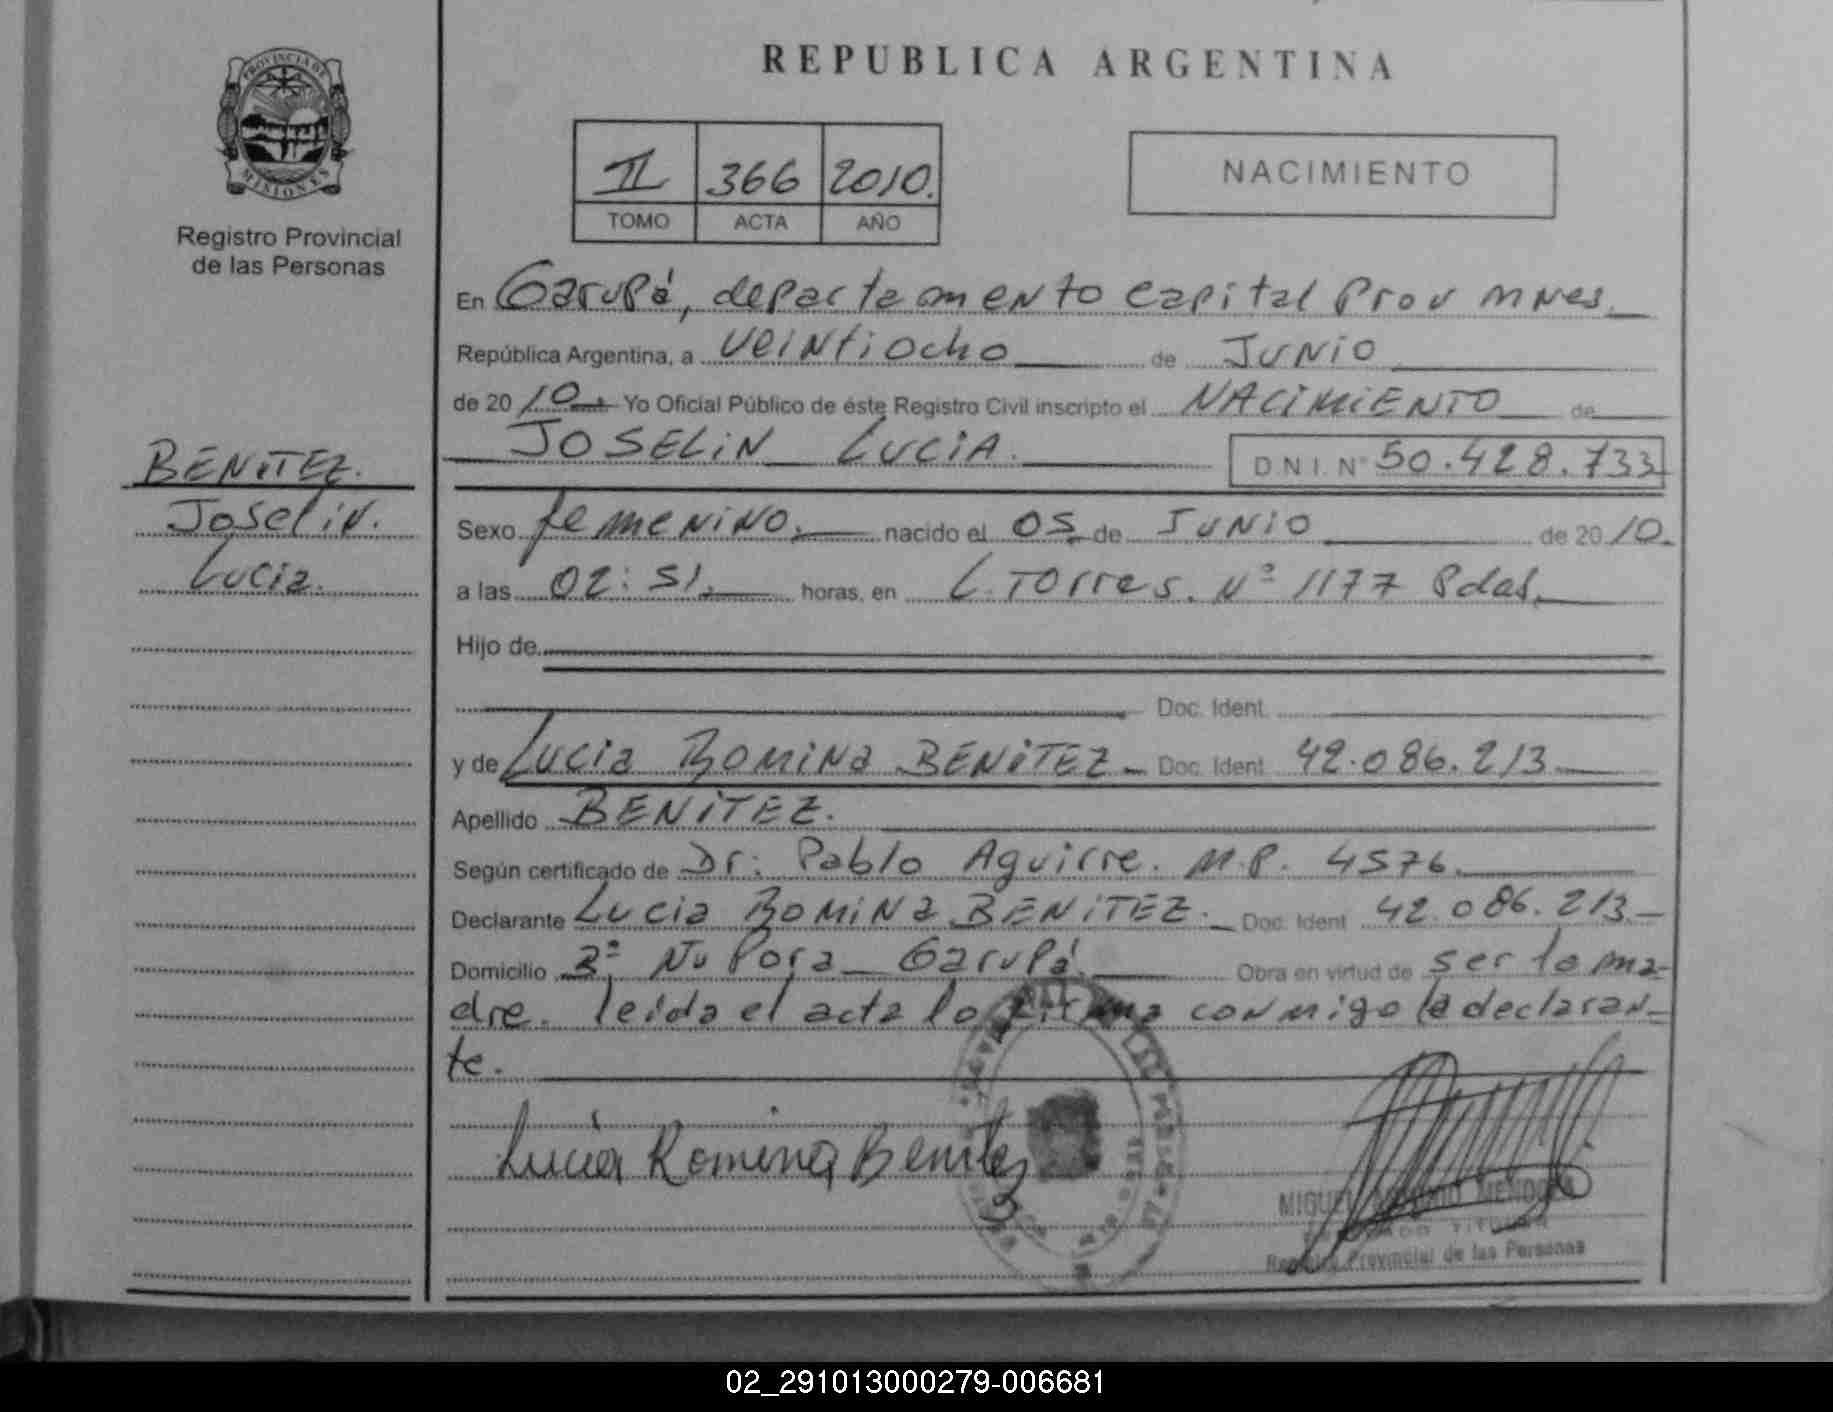 PROVINCIA DE
MISIONES
Registro Provincial
de las Personas
BENITEZ.
Joselin.
Lucia.
REPUBLICA ARGENTINA
II 366 2010.
TOMO ACTA AÑO
NACIMIENTO
En Garupá, departamento capital Prov mnes.
República Argentina, a veintiocho de JUNIO
de 2010. Yo Oficial Público de éste Registro Civil inscripto el NACIMIENTO de
JOSELIN LUCIA. D.N.I. Nº 50.428.733
Sexo femenino. nacido el 05 de JUNIO de 2010.
a las 02:51. horas, en L. Torres. Nº 1177 Pdas.
Hijo de
Doc. Ident.
y de Lucia Romina BENITEZ Doc. Ident 42.086.213
Apellido BENITEZ.
Según certificado de Dr: Pablo Aguirre. M.P. 4576.
Declarante Lucia Romina BENITEZ. Doc. Ident 42.086.213
Domicilio Bº Ñu Pora Garupá. Obra en virtud de ser la ma-
dre. leída el acta lo firma conmigo la declaran-
te.
Lucia Romina Benitez
MIGUEL MENDOZA
TITULAR
Registro Provincial de las Personas
02_291013000279-006681